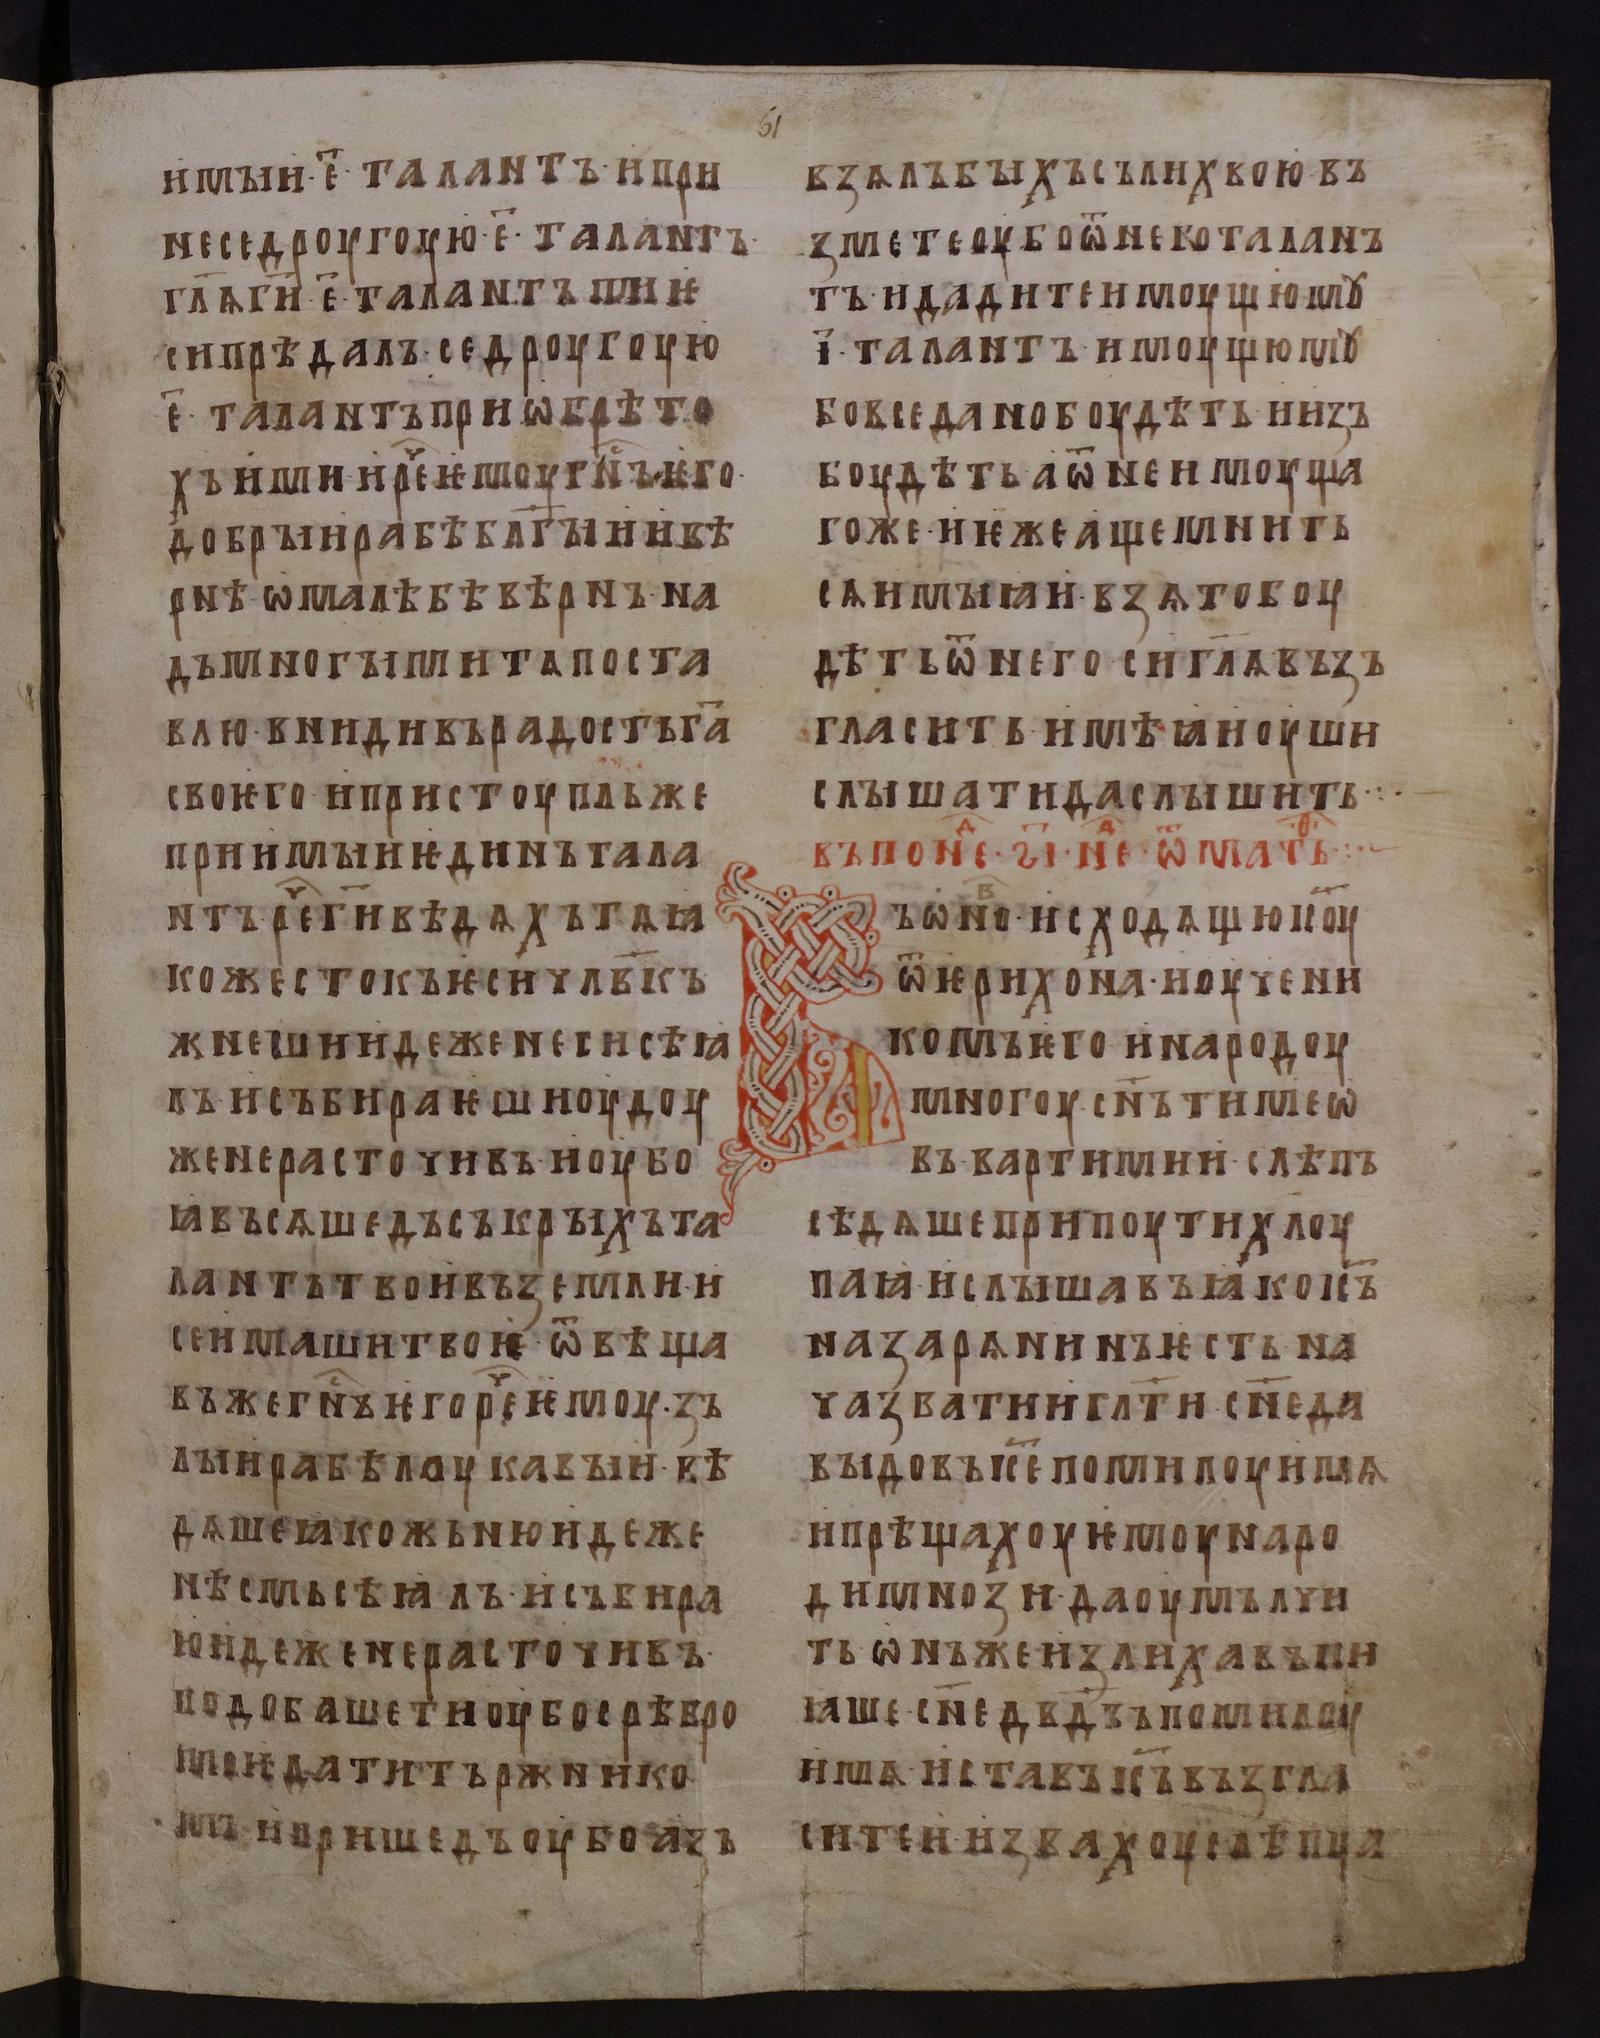 61
имыи·е҃· талантъ·и при
несе дроугоую·е҃· талантъ·
гл҃ѧ ги҃·е҃· талантъ ми ѥ
си прѣдалъ· се дроугоую
е҃· талантъ приѡбрѣто
хъ ими· и реⷱ ѥмоу гнⷭ҇ъ ѥго·
добрыи рабѣ блг҃ыи и вѣ
рнѣ· ѡ малѣ бѣ вѣрнъ· на
дъ многыми тѧ поста
влю· вниди въ радость га҃
своѥго· и пристоупль же
приимыи ѥдинъ тала
нтъ реⷱ ги҃ вѣдѧхъ тѧ ꙗ
ко жестокъ ѥси члв҃къ
жнеши идеже неси сѣꙗ
лъ· и събираѥши ноудоу
же не расточивъ· и оубо
ꙗвъсѧ шедъ съкрыхъ та
лантъ твои въ земли· и
се имаши твоѥ· ѿвѣща
въ же гнⷭ҇ъ ѥго реⷱ ѥмоу· зъ
лыи рабѣ лоукавыи· вѣ
дѧше ꙗко жьню идеже
нѣсмь сѣꙗлъ· и събира
ю идеже не расточивъ·
подобаше ти оубо срѣбро
моѥ дати тържнико
мъ и пришедъ оубо азъ
взѧлъ быхъ съ лихвою· въ
змете оубо ѿ него талан
тъ· и дадите имоущюмꙋ
і҃· талантъ· имоущюмꙋ
бо все дано боудѣть· и изъ
боудѣть· а ѿ не имоуща
го же· и ѥже аще мнить
сѧ имыꙗи· взѧто боу
дѣть ѿ него· си гл҃ѧ възъ
гласить· имѣꙗи оуши
слышати да слышить·:·
въ понеⷣ·г҃і·неⷣ·ѿ матⷴ҇·:·
Въ ѡноⷡ· исходѧщю ісо҃у
ѿ ѥрихона· и оучени
комъ ѥго и народоу
многоу· сн҃ъ тимеѡ
въ· вартимии· слѣпъ
сѣдѧше при поути хлоу
паꙗ· и слышавъ ꙗко іс҃ъ
назарѧнинъ ѥсть· на
ча звати и глт҃и· сн҃е да
выдовъ ісе҃ помилоуи мѧ
и прѣщахоу ѥмоу наро
ди мнози· да оумълчи
ть· ѡнъ же излиха въпи
ꙗше· сн҃е двд҃въ помилоу
и мѧ· и ставъ іс҃ъ възгла
сите и· и зваху слѣпца